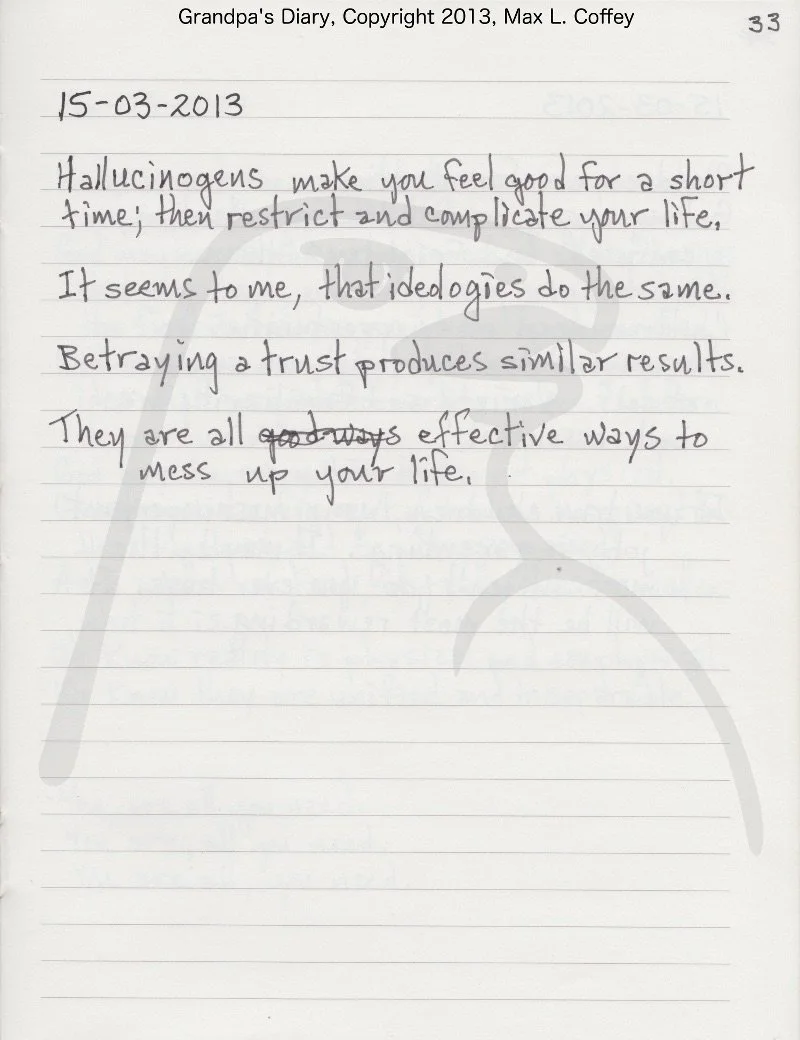 Grandpa's Diary, Copyright 2013, Max L. Coffey
33
15-03-2013
Hallucinogens make you feel good for a short
time; then restrict and complicate your life.
It seems to me, that ideologies do the same.
Betraying a trust produces similar results.
They are all good ways effective ways to
mess up your life.